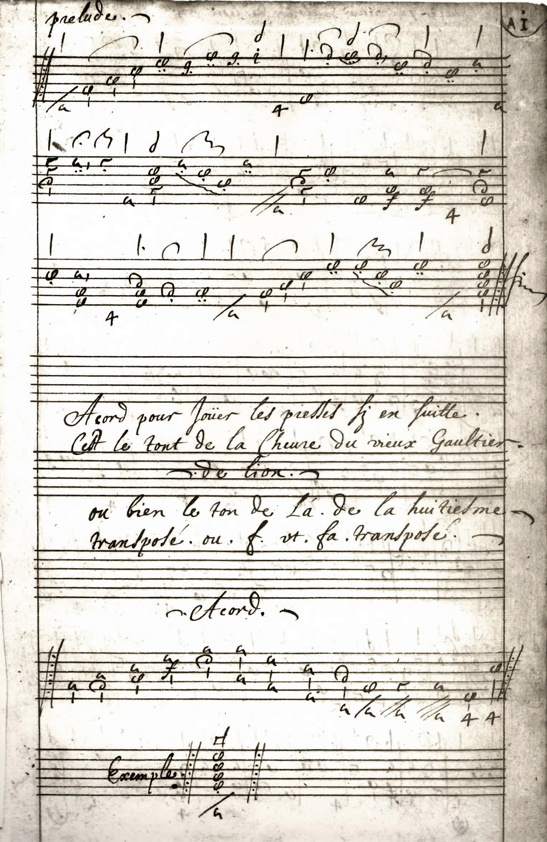 prelude.
A i
fin
Acord pour Joüer les piesses sj en suitte.
Cest le tont de la Cheure du vieux Gaultier.
de lion.
ou bien le ton de La. de la huitiesme
transposé. ou. f. vt. fa. transposé.
Acord.
Exemple.